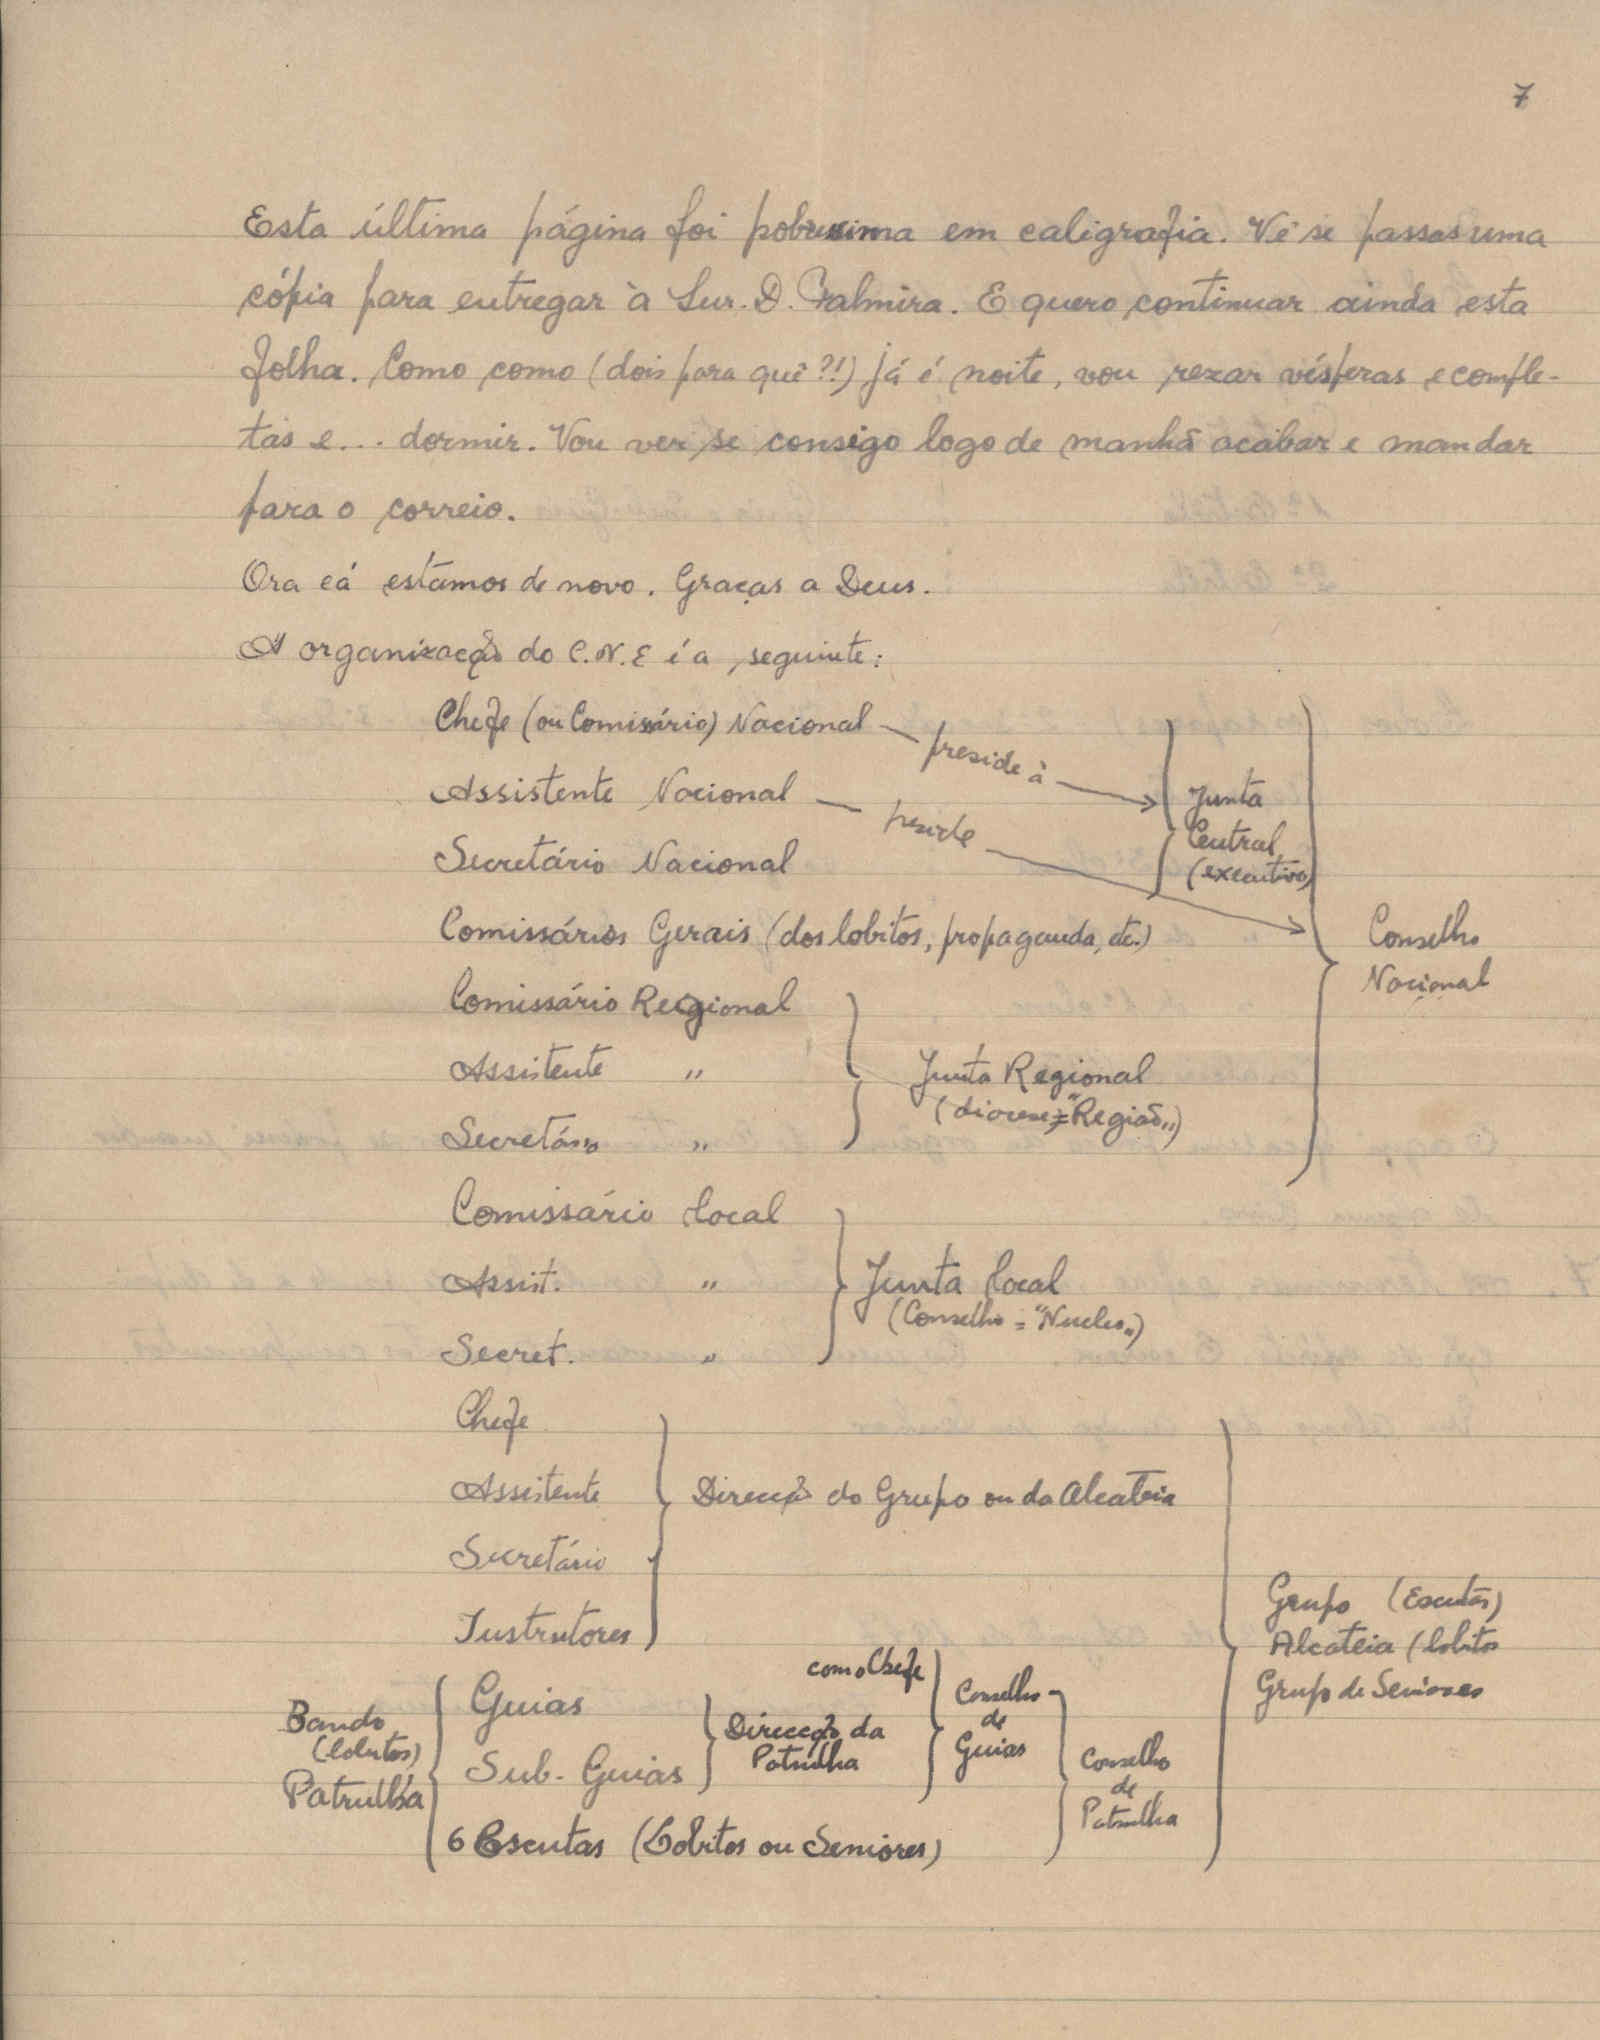 7
Esta última página foi pobríssima em caligrafia. Vê se passas uma
cópia para entregar à Snr. D. Palmira. E quero continuar ainda esta
folha. Como como (dois para quê?!) já é noite, vou rezar vésperas e comple-
tas e... dormir. Vou ver se consigo logo de manhã acabar e mandar
para o correio.
Ora cá estamos de novo. Graças a Deus.
A organização do C.N.E é a seguinte:
Chefe (ou Comissário) Nacional — preside à
Assistente Nacional — preside
Junta
Central
(executiva)
Secretário Nacional
Comissários Gerais (dos lobitos, propaganda, etc.)
Conselho
Nacional
Comissário Regional
Assistente "
Junta Regional
(diocese = "Região")
Secretário "
Comissário local
Assist. "
Junta local
(Conselho = "Nucleo")
Secret. "
Chefe
Assistente
Direcção do Grupo ou da Alcateia
Secretário
Instrutores
Grupo (Escutas)
Alcateia (lobitos
Grupo de Seniores
como Chefe
Bando
(lobitos)
Patrulha
Guias
Sub-Guias
Direcção da
Patrulha
Conselho
de
Guias
Conselho
de
Patrulha
6 Escutas (Lobitos ou Seniores)